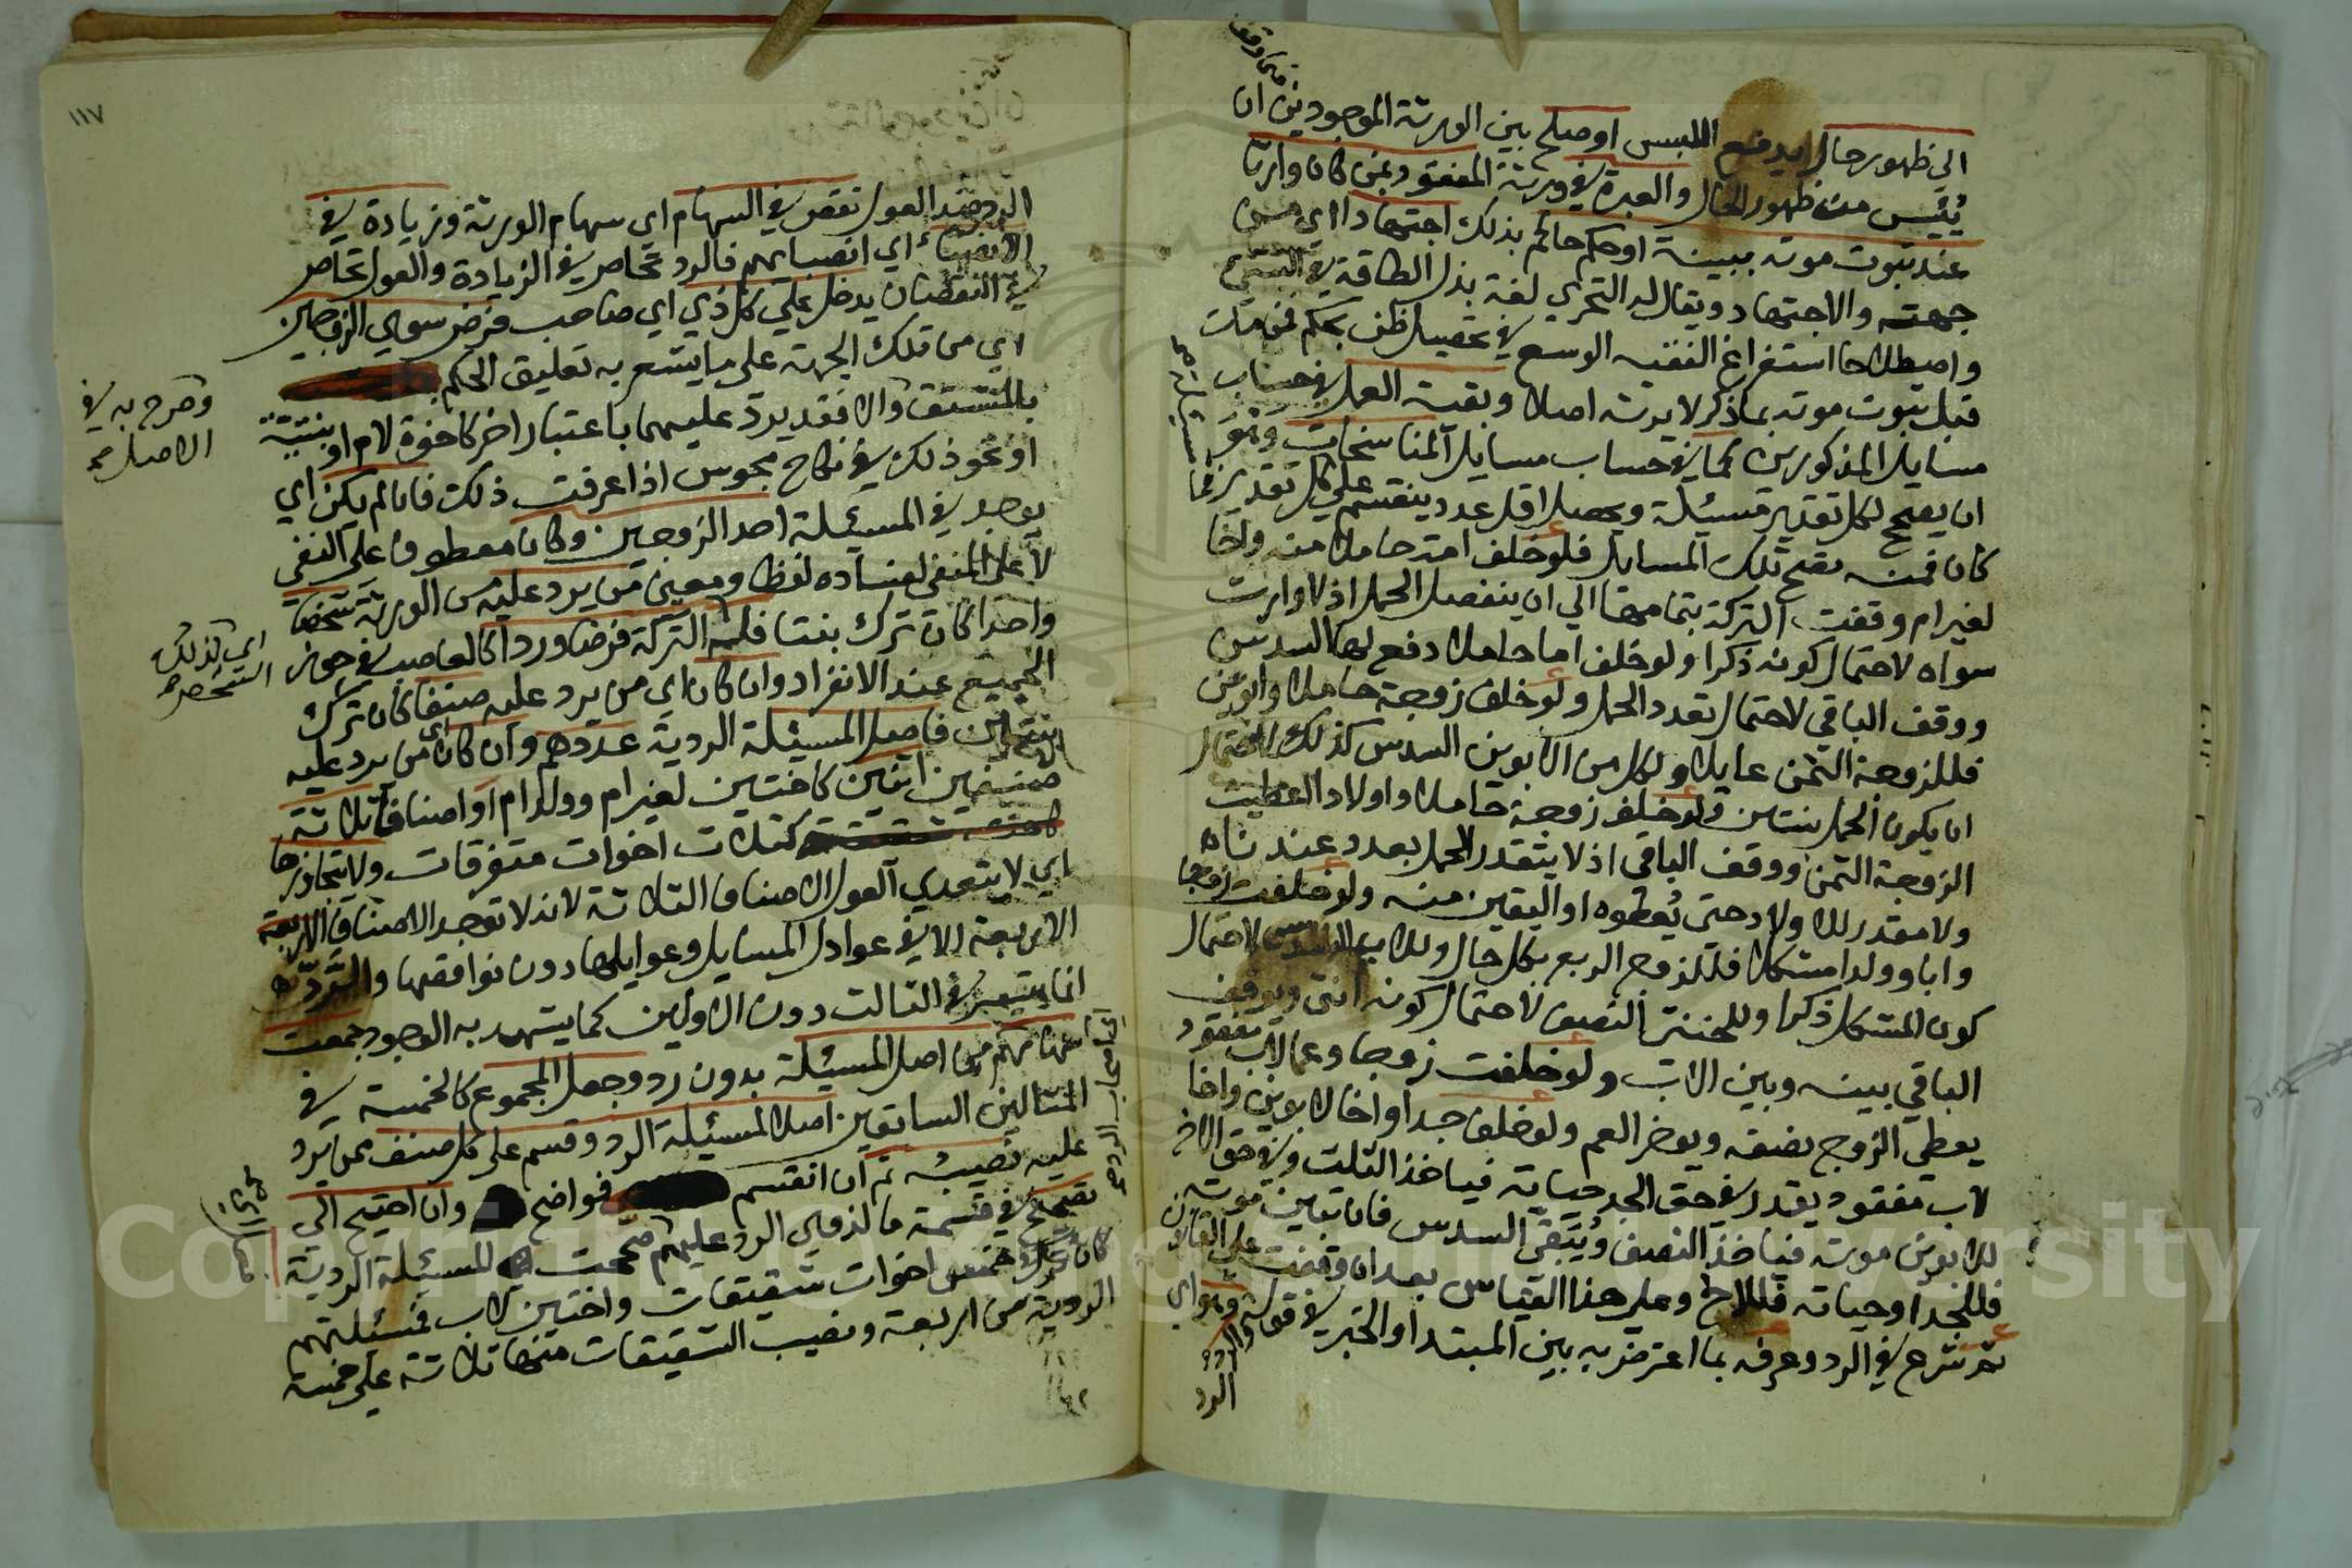 الي ظهور حال يدفع اللبس او صلح بين الورثة الموجودين ان
يُئِس من ظهور الحال والعبرة في ورثة المفقود بمن كان وارثا
عند ثبوت موته ببينة او حكم حاكم بذلك اجتهادا اي من
جهته والاجتهاد ويقال له التحري لغة بذل الطاقة في
واصطلاحا استفراغ الفقيه الوسع في تحصيل ظن بحكم فمن مات
قبل ثبوت موته بما ذكر لا يرثه اصلا وبقية العمل في حساب
مسايل المذكورين كما في حساب مسايل المناسخات وهو
ان يصح لكل تقدير مسئلة ويحصل اقل عدد ينقسم علي كل تقدير فما
كان فمنه تصح تلك المسايل فلو خلف امة حاملا منه واخا
لغير ام وقفت التركة بتمامها الي ان ينفصل الحمل اذ لا وارث
سواه لاحتمال كونه ذكرا ولو خلف اما حاملا دفع لها السدس
ووقف الباقي لاحتمال تعدد الحمل ولو خلف زوجة حاملا وابوين
فللزوجة الثمن عايلا ولكل من الابوين السدس كذلك لاحتمال
ان يكون الحمل بنتين ولو خلف زوجة حاملا واولادا اعطيت
الزوجة الثمن ووقف الباقي اذ لا يتقدر الحمل بعدد عندنا
ولا مقدر للاولاد حتى يُعطوه او اليقين منه ولو خلفت زوجا
وابا وولدا مشكلا فللزوج الربع بكل حال وللاب السدس لاحتمال
كون المشكل ذكرا وللخنثى النصف لاحتمال كونه انثى ويوقف
الباقي بينه وبين الاب ولو خلفت زوجا وعما لاب مفقود
يعطي الزوج نصفه ويوخر العم ولو خلف جدا واخا لابوين واخا
لاب مفقود يقدر في حق الجد حياته فياخذ الثلث وفي حق الاخ
للابوين موته فياخذ النصف ويُبَقَّى السدس فان تبين موته
فللجد او حياته فللاخ وعلى هذا القياس بعد ان وقفت على القانون
ثم شرع في الرد وعرفه بما اعترض به بين المبتدا والخبر في قوله والرد وهو اي
الرد
١١٧
الرد ضد العول نقص في السهام اي سهام الورثة وزيادة في
الانصباء اي انصبايهم فالرد تحاصر في الزيادة والعول تحاصر
في النقصان يدخل علي كل ذي اي صاحب فرض سوي الزوجين
اي من تلك الجهة على ما يشعر به تعليق الحكم
بالمشتق والا فقد يرد عليهما باعتبار اخر كاخوة لام او بنتية
وصرح به في
الاصل صح
او نحو ذلك في نكاح مجوس اذا عرفت ذلك فان لم يكن اي
يوجد في المسئلة احد الزوجين وكان معطوفا على النفي
لا على المنفي لفساده لفظا ومعنى من يرد عليه من الورثة شخصا
واحدا كان ترك بنتا فله التركة فرضا وردا كالعاصب في حوز
اي كذلك
الشخص صح
الجميع عند الانفراد وان كان اي من يرد عليه صنفا كان ترك
بنتين فاصل المسئلة الردية عددهم وان كان من يرد عليه
صنفين اثنين كاختين لغير ام وولد ام او اصنافا ثلاثة
كثلاث اخوات متفرقات ولا يتجاوزها
اي لا يتعدي العول الاصناف الثلاثة لانه لا توجد الاصناف الاربعة
الاربعة الا في عوادل المسايل وعوايلها دون نواقصها والرد
انما يتيسر في الثالث دون الاولين كما يشهد به الوجود جمعت
سهامهم من اصل المسئلة بدون رد وجعل المجموع كالخمسة في
المثالين السابقين اصلا لمسئلة الرد وقسم على كل صنف ممن يرد
عليه نصيبه ثم ان انقسم فواضح وان احتيج الي
تصحيح في قسمة ما لذوي الرد عليهم صححت المسئلة الردية
كان ترك خمس اخوات شقيقات واختين لاب فمسئلتهم
الردية من اربعة ونصيب الشقيقات منها ثلاثة على خمسة
Copyright © King Saud University